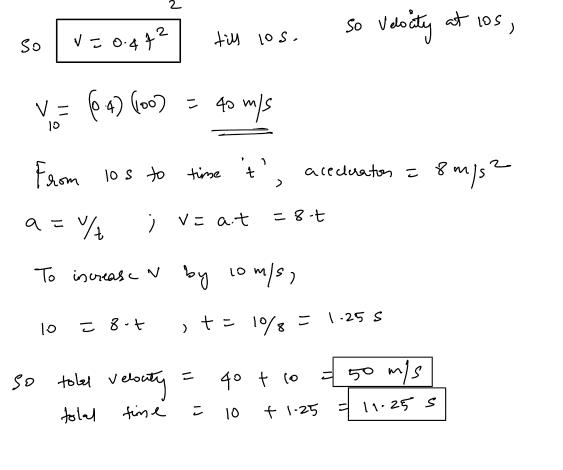 2
So v = 0.4 t² till 10 s. So Velocity at 10s,
V₁₀ = (0.4) (100) = 40 m/s
From 10 s to time 't', acceleration = 8 m/s²
a = v/t ; v = a.t = 8.t
To increase v by 10 m/s,
10 = 8.t , t = 10/8 = 1.25 s
So total velocity = 40 + 10 = 50 m/s
total time = 10 + 1.25 = 11.25 s